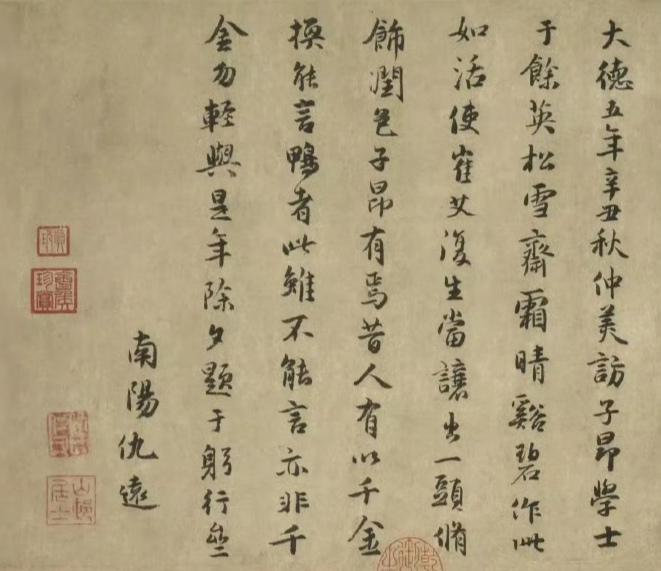 大德五年辛丑秋仲美訪子昂學士
于餘英松雪齋霜晴谿碧作此
如活使崔艾復生當讓出一頭脩
飾潤色子昂有焉昔人有以千金
換能言鴨者此雖不能言亦非千
金勿輕與是年除夕題于躬行垒
南陽仇遠